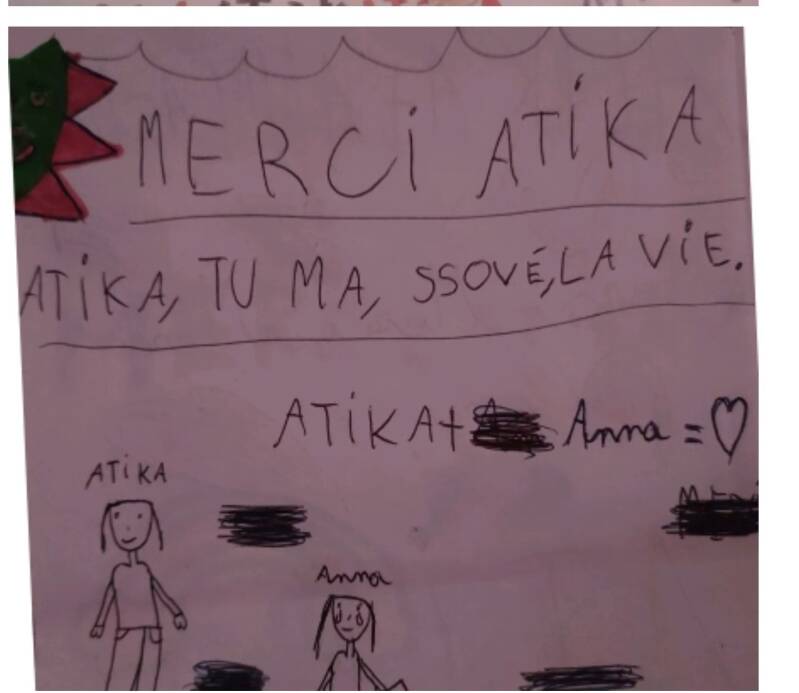 MERCI ATIKA
ATIKA, TU MA, SSOVÉ, LA VIE.
ATIKA + Anna = ♡
ATIKA
Anna